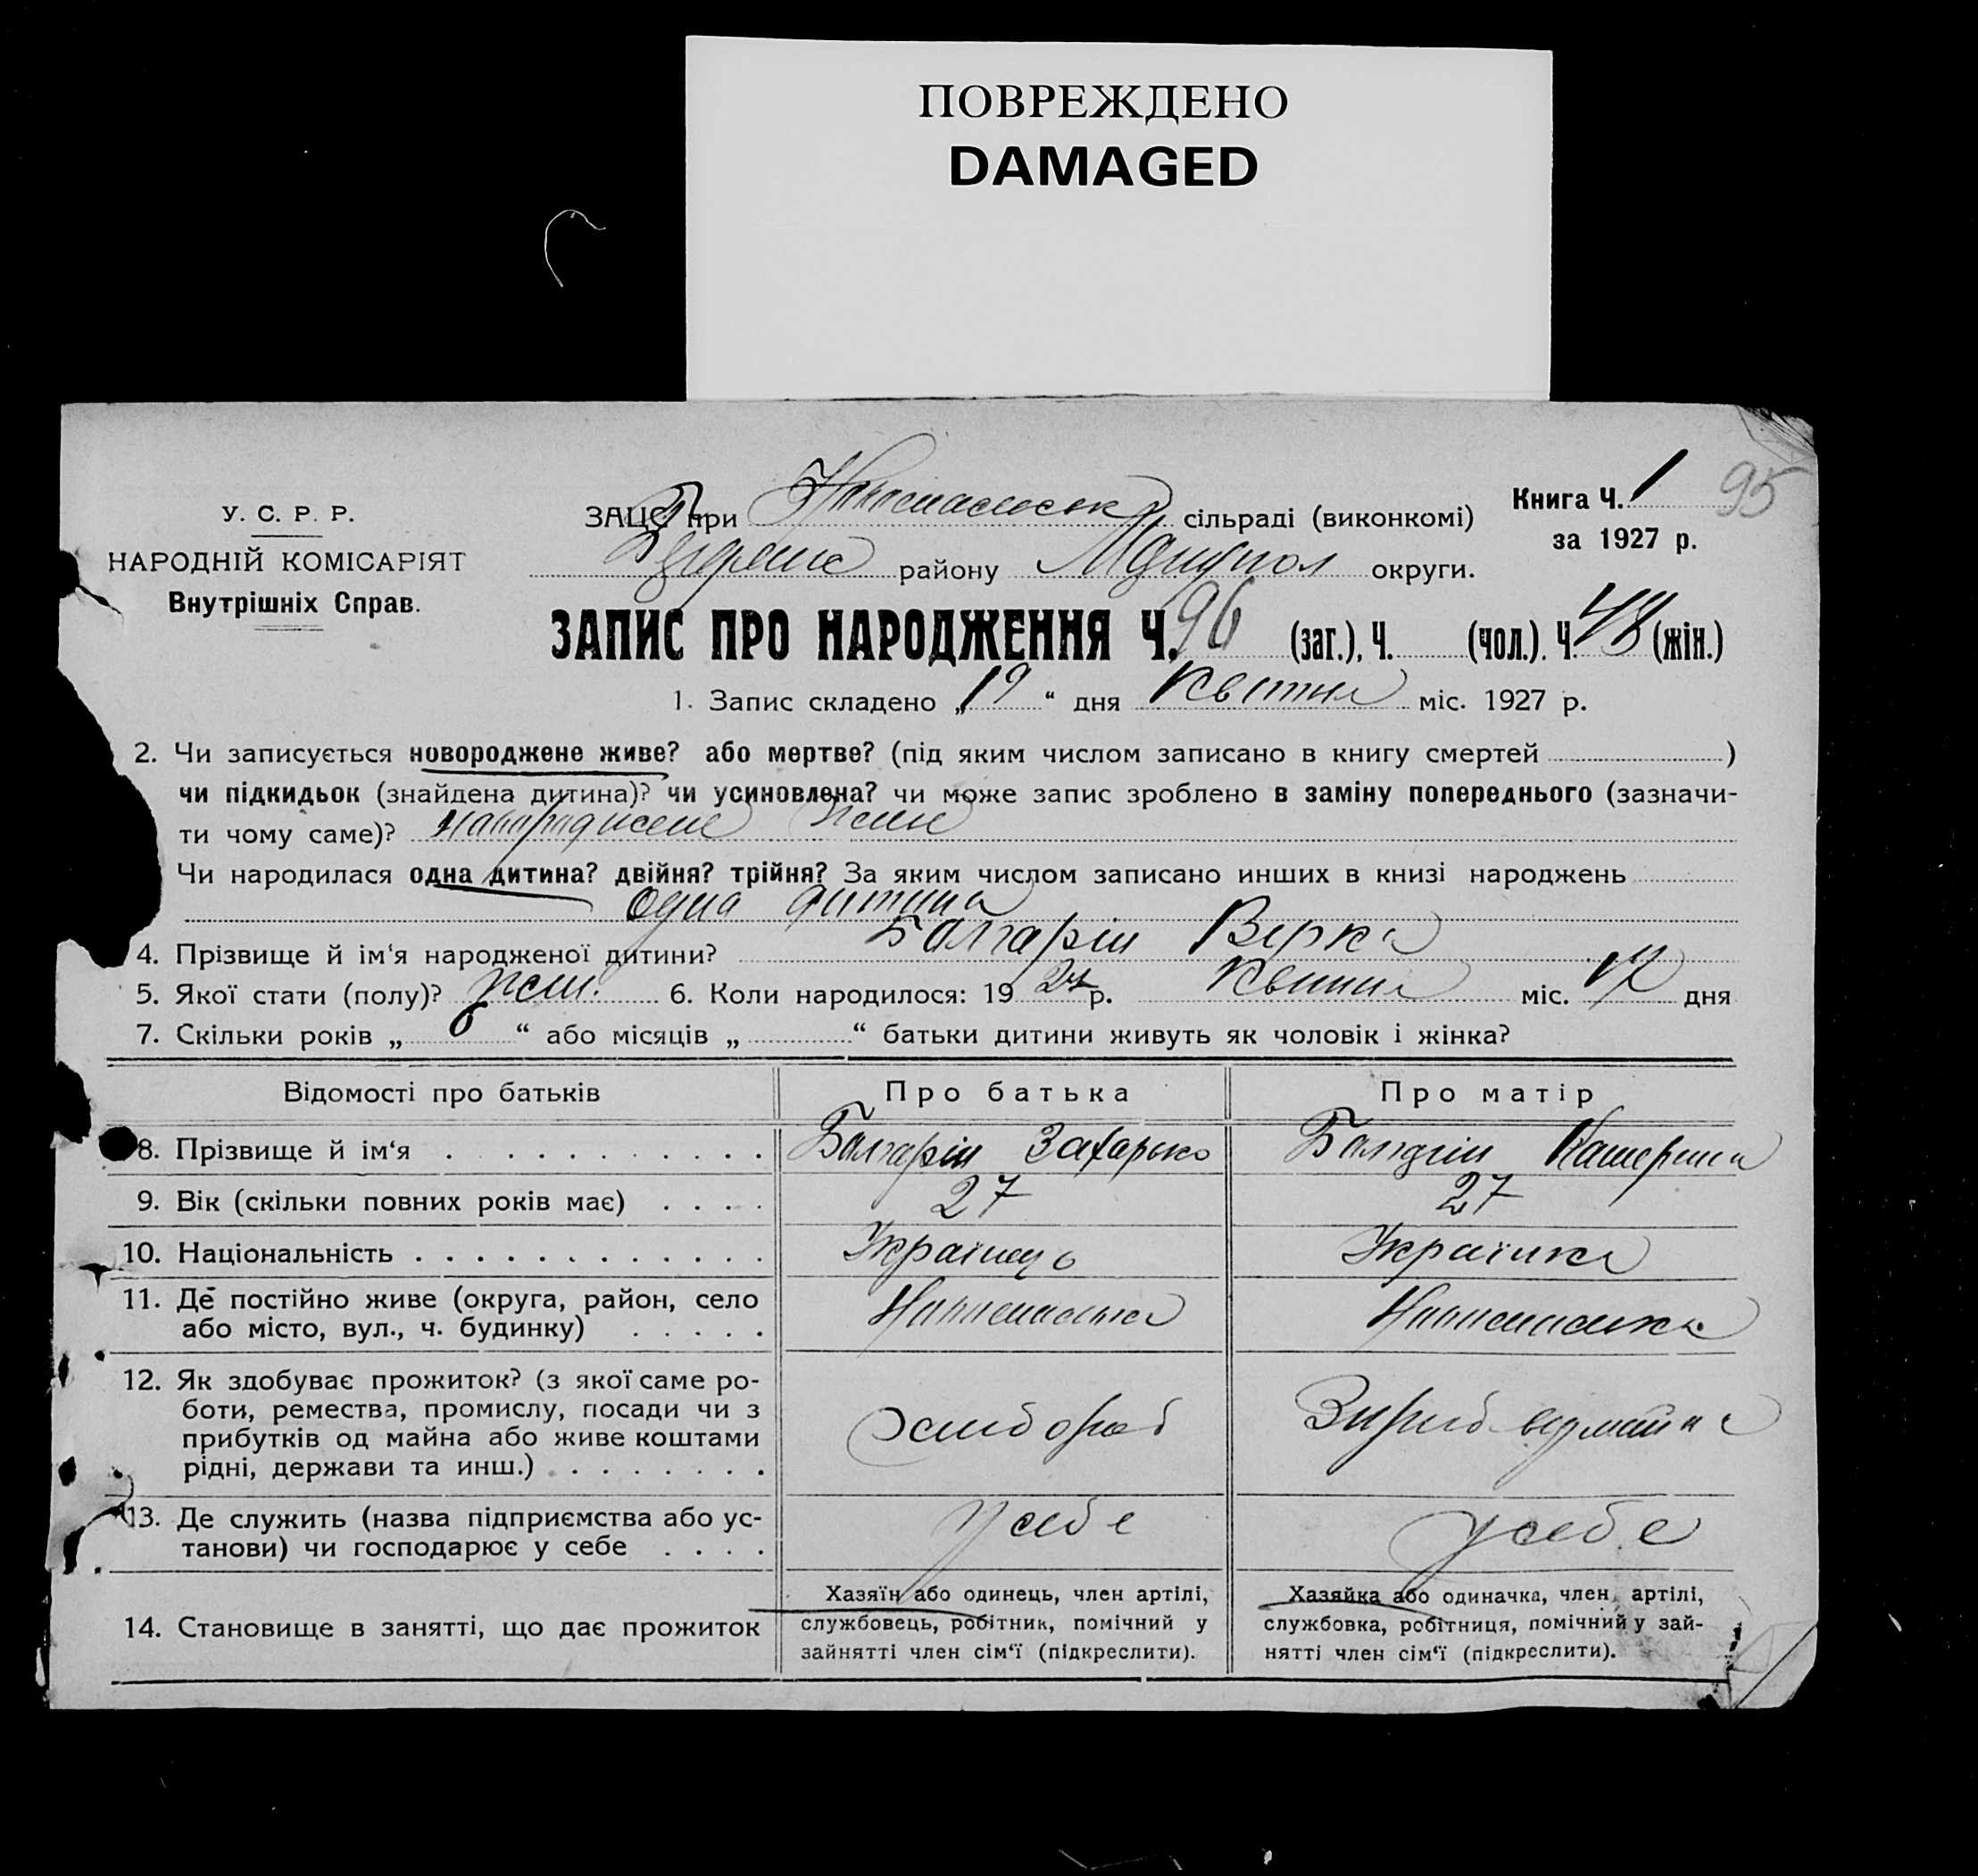 ПОВРЕЖДЕНО
DAMAGED
95
У. С. Р. Р.
НАРОДНІЙ КОМІСАРІЯТ
Внутрішніх Справ.
ЗАЦС при сільраді (виконкомі)
району Маріупол округи.
Книга Ч. 1
за 1927 р.
ЗАПИС ПРО НАРОДЖЕННЯ Ч. 96 (заг.), Ч. (чол.). Ч. 48 (жін.)
1. Запис складено „19“ дня Квітня міс. 1927 р.
2. Чи записується новороджене живе? або мертве? (під яким числом записано в книгу смертей )
чи підкидьок (знайдена дитина)? чи усиновлена? чи може запис зроблено в заміну попереднього (зазначи-
ти чому саме)?
Чи народилася одна дитина? двійня? трійня? За яким числом записано инших в книзі народжень
одна дитина
4. Прізвище й ім‘я народженої дитини? Вірка
5. Якої стати (полу)? жін. 6. Коли народилося: 1927 р. Квітня міс. дня
7. Скільки років „6“ або місяців „ “ батьки дитини живуть як чоловік і жінка?
Відомості про батьків Про батька Про матір
8. Прізвище й ім‘я Захарько Катерина
9. Вік (скільки повних років має) 27 27
10. Національність Українець Українка
11. Де постійно живе (округа, район, село
або місто, вул., ч. будинку)
12. Як здобуває прожиток? (з якої саме ро-
боти, ремества, промислу, посади чи з
прибутків од майна або живе коштами
рідні, держави та инш.) хлибораб
13. Де служить (назва підприємства або ус-
танови) чи господарює у себе у себе у себе
14. Становище в занятті, що дає прожиток
Хазяїн або одинець, член артілі,
службовець, робітник, помічний у
зайнятті член сім‘ї (підкреслити).
Хазяйка або одиначка, член артілі,
службовка, робітниця, помічний у зай-
нятті член сім‘ї (підкреслити).